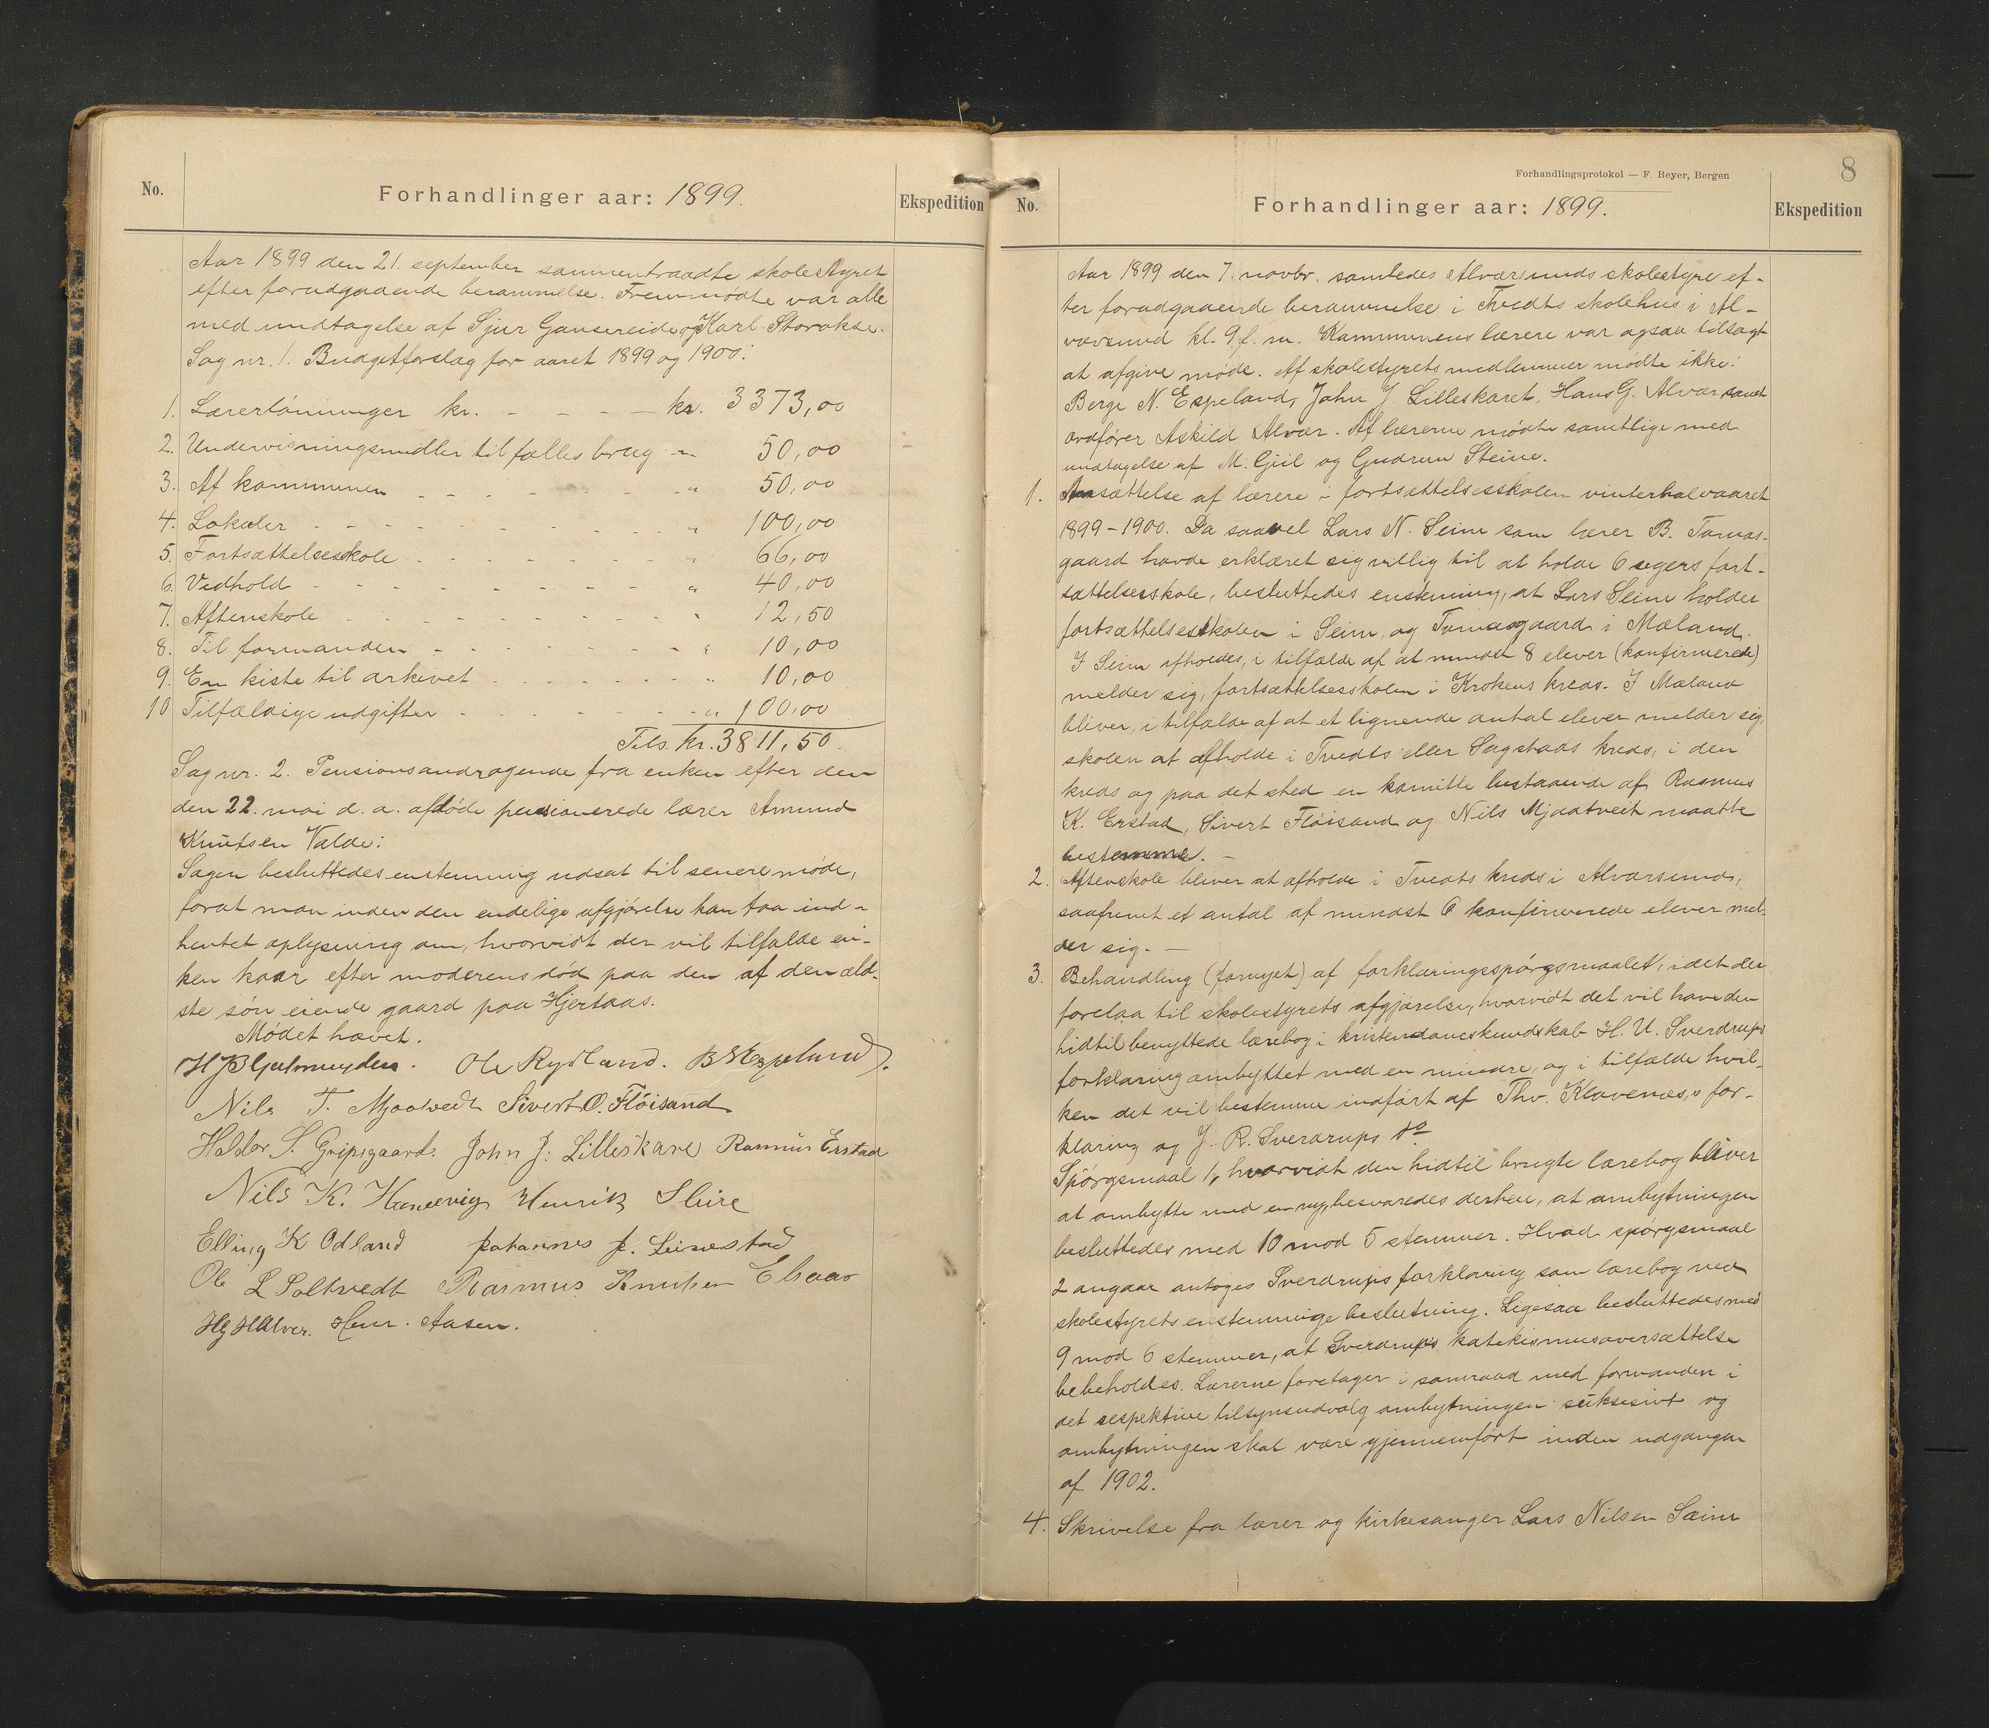 No.
Forhandlinger aar: 1899.
Ekspedition
Aar 1899 den 21. september sammentraadte skolestyret
efter forudgaaende berammelse. Fremmødte var alle
med undtagelse af Sjur Gausereide og Karl Storokse.
Sag nr. 1. Budgetforslag for aaret 1899 og 1900:
1. Lærerlönninger kr. - - - - kr. 3373,00
2. Undervisningsmidler til fælles brug - " 50,00
3. Af kommunen - - - - - - - " 50,00
4. Lokaler - - - - - - - - - " 100,00
5. Fortsættelsesskole - - - - - - - " 66,00
6. Vedhold - - - - - - - - " 40,00
7. Aftenskole - - - - - - - - " 12,50
8. Til formanden - - - - - - - " 10,00
9. En kiste til arkivet - - - - - - " 10,00
10 Tilfældige udgifter - - - - - - " 100,00
Tils. kr. 3811,50.
Sag nr. 2. Pensionsandragende fra enken efter den
den 22. mai d. a. afdöde pensionerede lærer Amund
Knutsen Valde:
Sagen besluttedes enstemmig udsat til senere møde,
forat man inden den endelige afgjörelse kan faa ind-
hentet oplysning om, hvorvidt der vil tilfalde en-
ken kaar efter moderens död paa den af den æld-
ste sön eiende gaard paa Hjertaas.
Mødet hævet.
H J B Gjelmuyden. Ole Rydland. B N Espeland.
Nils T. Mjaatvedt Sivert O. Flöisand
Haldor S. Gripsgaard. John J. Lilleskare Rasmus Erstad
Nils K. Hannevig Henrik Skire
Elling K Odland Johannes J. Leinestad
Ole L Soltvedt Rasmus Knutsen Elsaas
Hg H Alver. Henr. Aasen.
Forhandlingsprotokol — F. Beyer, Bergen
8
No.
Forhandlinger aar: 1899.
Ekspedition
Aar 1899 den 7. novbr. samledes Alværsunds skolestyre ef-
ter forudgaaende berammelse i Tvedts skolehus i Al-
værsund kl. 9 f. m. Kommunens lærere var ogsaa tilsagt
at afgive møde. Af skolestyrets medlemmer mødte ikke:
Berge N. Espeland, John J. Lilleskaret, Hans G. Alvær samt
ordfører Askild Alvær. Af lærerne mødte samtlige med
undtagelse af M. Gjil og Gudrun Steine.
1. Ansættelse af lærere i fortsættelsesskolen vinterhalvaaret
1899-1900. Da saavel Lars N. Seim som lærer B. Tomas-
gaard havde erklæret sig villig til at holde 6 ugers fort-
sættelsesskole, besluttedes enstemmig, at Lars Seim holder
fortsættelsesskolen i Seim, og Tomasgaard i Mæland.
I Seim afholdes, i tilfælde af at mindst 8 elever (konfirmerede)
melder sig, fortsættelsesskolen i Krokens kreds. I Mæland
bliver, i tilfælde af at et lignende antal elever melder sig,
skolen at afholde i Tvedts eller Sagstads kreds, i den
kreds og paa det sted en komitte bestaaende af Rasmus
K. Erstad, Sivert Flöisand og Nils Mjaatveit maatte
bestemme. —
2. Aftenskole bliver at afholde i Tvedts kreds i Alværsund,
saafremt et antal af mindst 6 konfirmerede elever mel-
der sig. —
3. Behandling (fornyet) af forklaringsspörgsmaalet, idet der
forelaa til skolestyrets afgjørelse, hvorvidt det vil have den
hidtil benyttede lærebog i kristendomskundskab H. U. Sverdrups
forklaring ombyttet med en mindre, og i tilfælde hvil-
ken det vil bestemme indfört af Thv. Klavenæs's for-
klaring og J. R. Sverdrups do
Spörgsmaal 1, hvorvidt den hidtil brugte lærebog bliver
at ombytte med en ny, besvaredes derhen, at ombytningen
besluttedes med 10 mod 5 stemmer. Hvad spörgsmaal
2 angaar antoges Sverdrups forklaring som lærebog ved
skolestyrets enstemmige beslutning. Ligesaa besluttedes med
9 mod 6 stemmer, at Sverdrups katekismusoversættelse
bebeholdes. Lærerne foretager i samraad med formanden i
det respektive tilsynsudvalg ombytningen suksesivt og
ombytningen skal være gjennemfört inden udgangen
af 1902.
4. Skrivelse fra lærer og kirkesanger Lars Nilsen Sæim